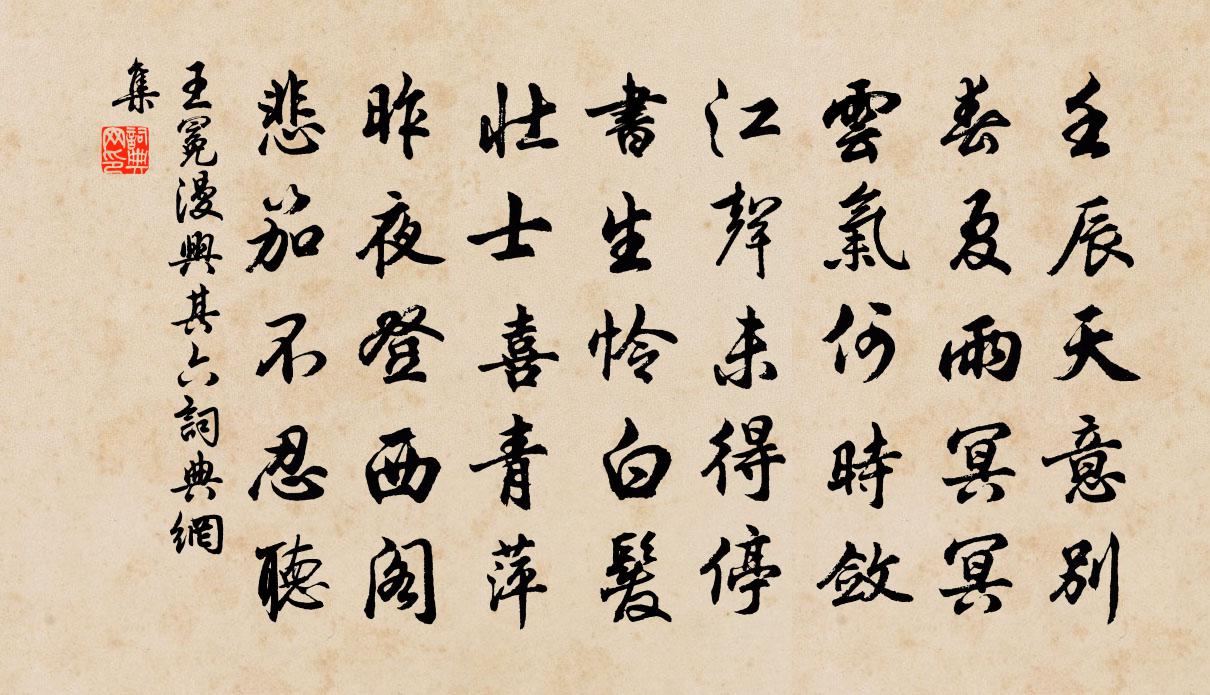 壬辰天意別
春夏雨冥冥
雲氣何時斂
江聲未得停
書生怜白髮
壯士喜青萍
昨夜登西閣
悲笳不忍聽
王冕漫興其六詞典網
集
詞典
网印